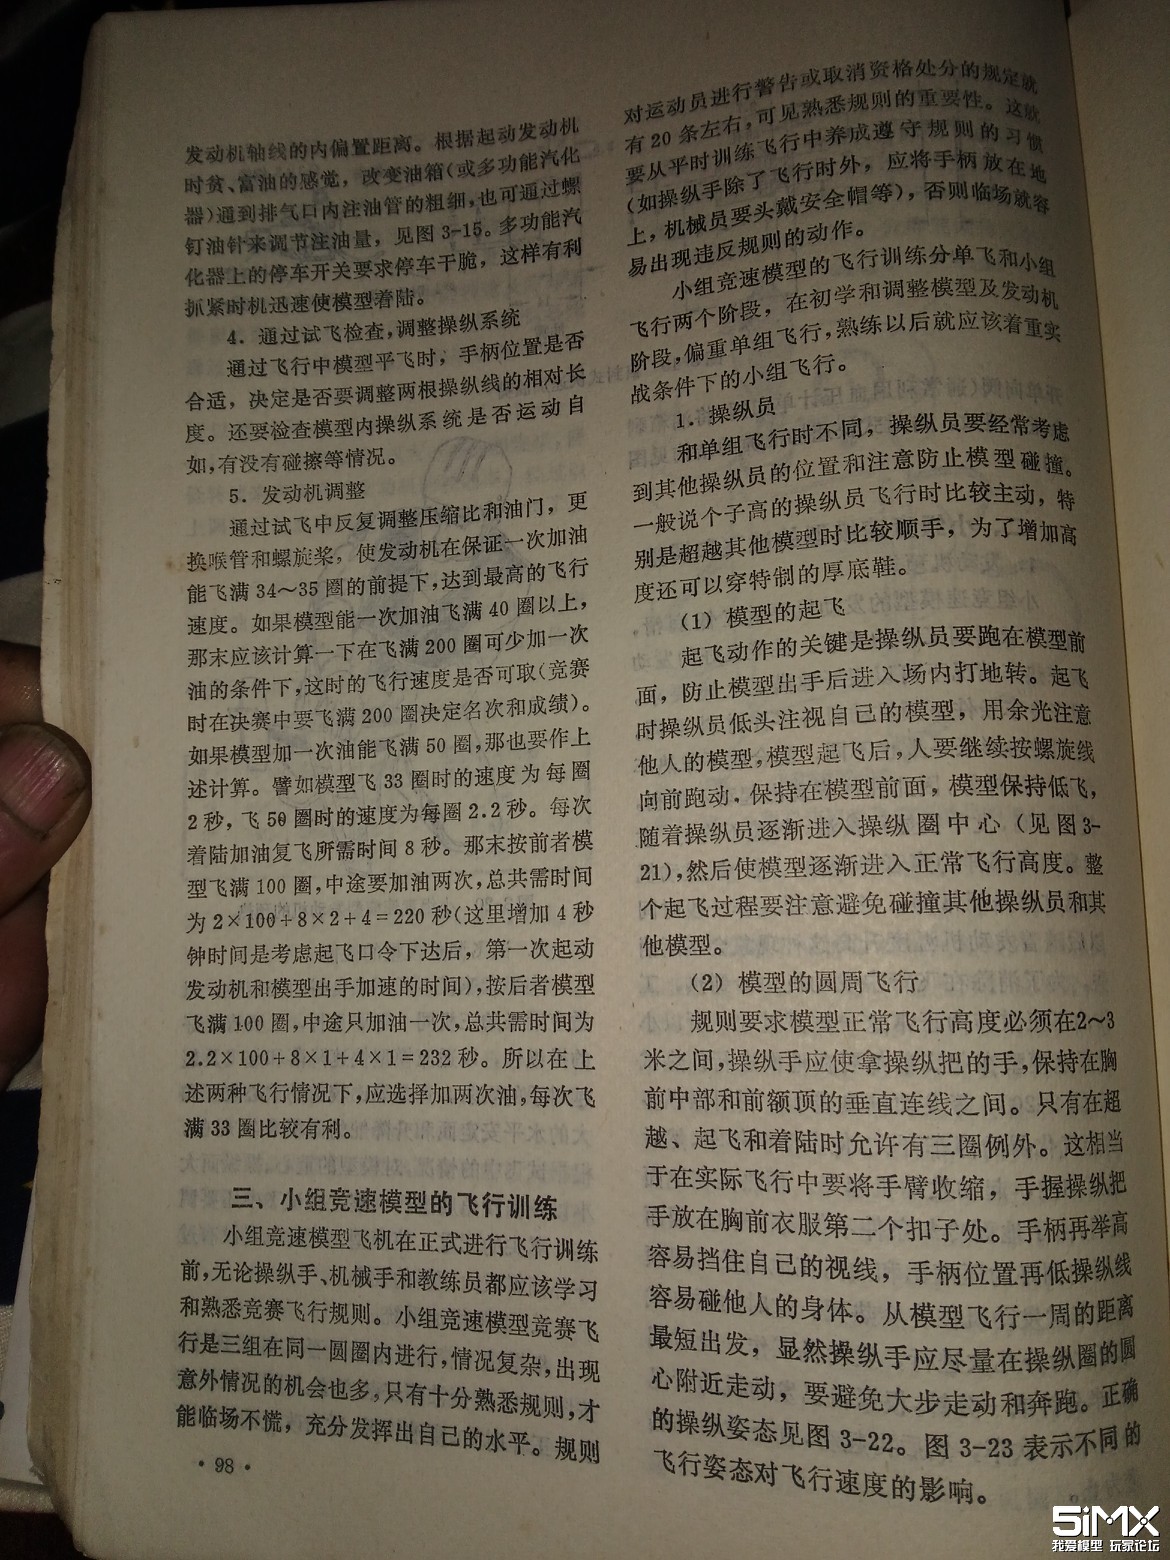 发动机轴线的内偏置距离。根据起动发动机
时贫、富油的感觉，改变油箱(或多功能汽化
器)通到排气口内注油管的粗细，也可通过螺
钉油针来调节注油量，见图3-15。多功能汽
化器上的停车开关要求停车干脆，这样有利
抓紧时机迅速使模型着陆。
4．通过试飞检查，调整操纵系统
通过飞行中模型平飞时，手柄位置是否
合适，决定是否要调整两根操纵线的相对长
度。还要检查模型内操纵系统是否运动自
如，有没有碰擦等情况。
5．发动机调整
通过试飞中反复调整压缩比和油门，更
换喉管和螺旋桨，使发动机在保证一次加油
能飞满34～35圈的前提下，达到最高的飞行
速度。如果模型能一次加油飞满40圈以上，
那末应该计算一下在飞满200圈可少加一次
油的条件下，这时的飞行速度是否可取(竞赛
时在决赛中要飞满200圈决定名次和成绩)。
如果模型加一次油能飞满50圈，那也要作上
述计算。譬如模型飞33圈时的速度为每圈
2秒，飞50圈时的速度为每圈2.2秒。每次
着陆加油复飞所需时间8秒。那末按前者模
型飞满100圈，中途要加油两次，总共需时间
为2×100+8×2+4=220秒(这里增加4秒
钟时间是考虑起飞口令下达后，第一次起动
发动机和模型出手加速的时间)，按后者模型
飞满100圈，中途只加油一次，总共需时间为
2.2×100+8×1+4×1=232秒。所以在上
述两种飞行情况下，应选择加两次油，每次飞
满33圈比较有利。
三、小组竞速模型的飞行训练
小组竞速模型飞机在正式进行飞行训练
前，无论操纵手、机械手和教练员都应该学习
和熟悉竞赛飞行规则。小组竞速模型竞赛飞
行是三组在同一圆圈内进行，情况复杂，出现
意外情况的机会也多，只有十分熟悉规则，才
能临场不慌，充分发挥出自己的水平。规则
·98·
对运动员进行警告或取消资格处分的规定就
有20条左右，可见熟悉规则的重要性。这就
要从平时训练飞行中养成遵守规则的习惯
(如操纵手除了飞行时外，应将手柄放在地
上，机械员要头戴安全帽等)，否则临场就容
易出现违反规则的动作。
小组竞速模型的飞行训练分单飞和小组
飞行两个阶段，在初学和调整模型及发动机
阶段，偏重单组飞行，熟练以后就应该着重实
战条件下的小组飞行。
1．操纵员
和单组飞行时不同，操纵员要经常考虑
到其他操纵员的位置和注意防止模型碰撞。
一般说个子高的操纵员飞行时比较主动，特
别是超越其他模型时比较顺手，为了增加高
度还可以穿特制的厚底鞋。
(1) 模型的起飞
起飞动作的关键是操纵员要跑在模型前
面，防止模型出手后进入场内打地转。起飞
时操纵员低头注视自己的模型，用余光注意
他人的模型，模型起飞后，人要继续按螺旋线
向前跑动，保持在模型前面，模型保持低飞，
随着操纵员逐渐进入操纵圈中心(见图3-
21)，然后使模型逐渐进入正常飞行高度。整
个起飞过程要注意避免碰撞其他操纵员和其
他模型。
(2) 模型的圆周飞行
规则要求模型正常飞行高度必须在2～3
米之间，操纵手应使拿操纵把的手，保持在胸
前中部和前额顶的垂直连线之间。只有在超
越、起飞和着陆时允许有三圈例外。这相当
于在实际飞行中要将手臂收缩，手握操纵把
手放在胸前衣服第二个扣子处。手柄再举高
容易挡住自己的视线，手柄位置再低操纵线
容易碰他人的身体。从模型飞行一周的距离
最短出发，显然操纵手应尽量在操纵圈的圆
心附近走动，要避免大步走动和奔跑。正确
的操纵姿态见图3-22。图3-23表示不同的
飞行姿态对飞行速度的影响。
5iMX
我爱模型 玩家论坛